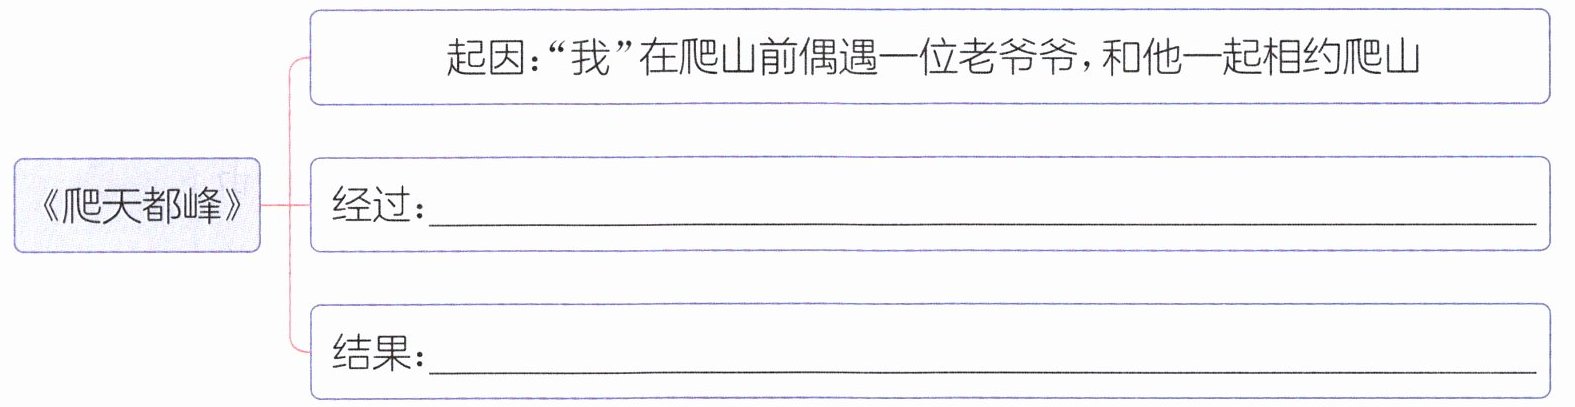 起因:“我”在爬山前偶遇一位老爷爷,和他一起相约爬山
《爬天都峰》
经过:
结果: